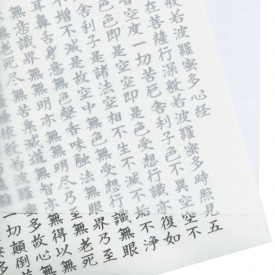 般若波羅蜜多心経
在菩薩行深般若波羅蜜多時照見五
皆空度一切苦厄舍利子色不異空空不
色即是空空即是色受想行識亦復如
舍利子是諸法空相不生不滅不垢不淨
不増不減是故空中無色無受想行識無眼
耳鼻舌身意無色聲香味觸法無眼界乃至
無意識界無無明亦無無明盡乃至無老死
老死盡無苦集滅道無智亦無得以無
依般若波羅蜜多故心無
一切顛倒